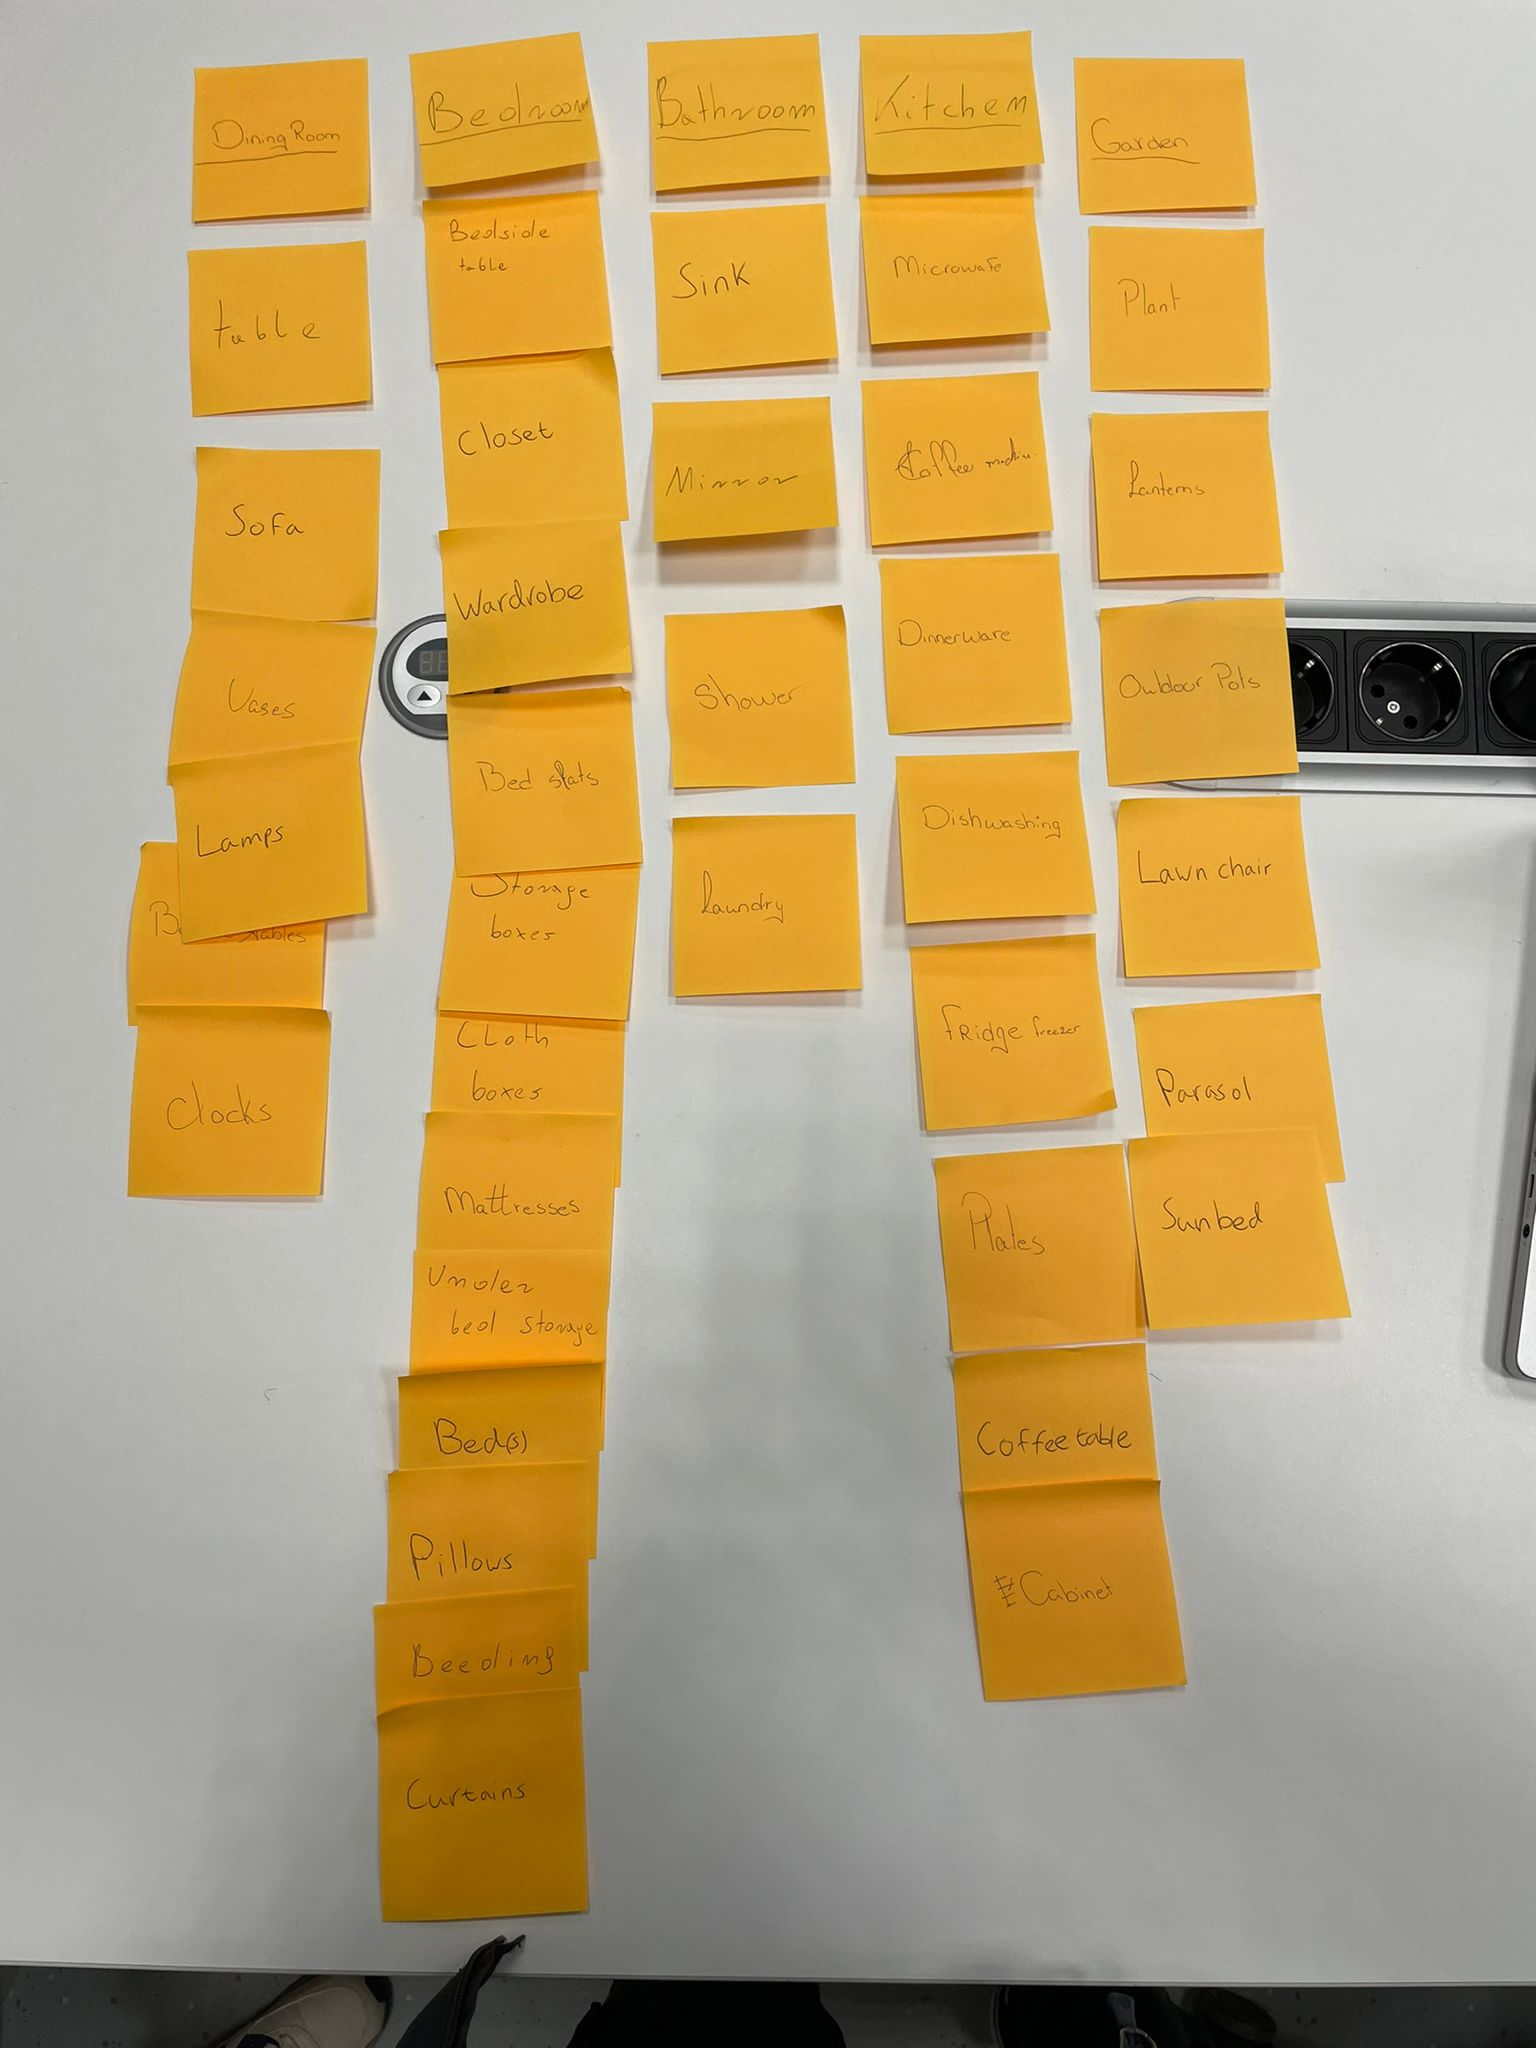 Dining Room
table
Sofa
Vases
Lamps
tables
Clocks
Bedroom
Bedside
table
Closet
Wardrobe
Bed slats
Storage
boxes
Cloth
boxes
Mattresses
Under
bed storage
Bed(s)
Pillows
Beeding
Curtains
Bathroom
Sink
Mirror
Shower
Laundry
Kitchen
Microwafe
Coffee machine
Dinnerware
Dishwashing
fridge freezer
Plates
Coffee table
Cabinet
Garden
Plant
Lanterns
Outdoor Pots
Lawn chair
Parasol
Sunbed